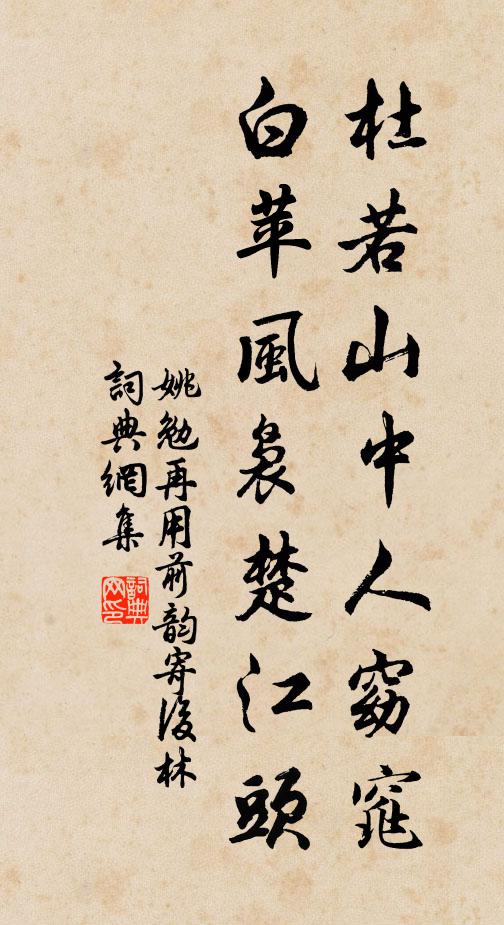 杜若山中人窈窕
白苹風袅楚江頭
姚勉再用前韵寄後林
詞典網集
詞典
网印